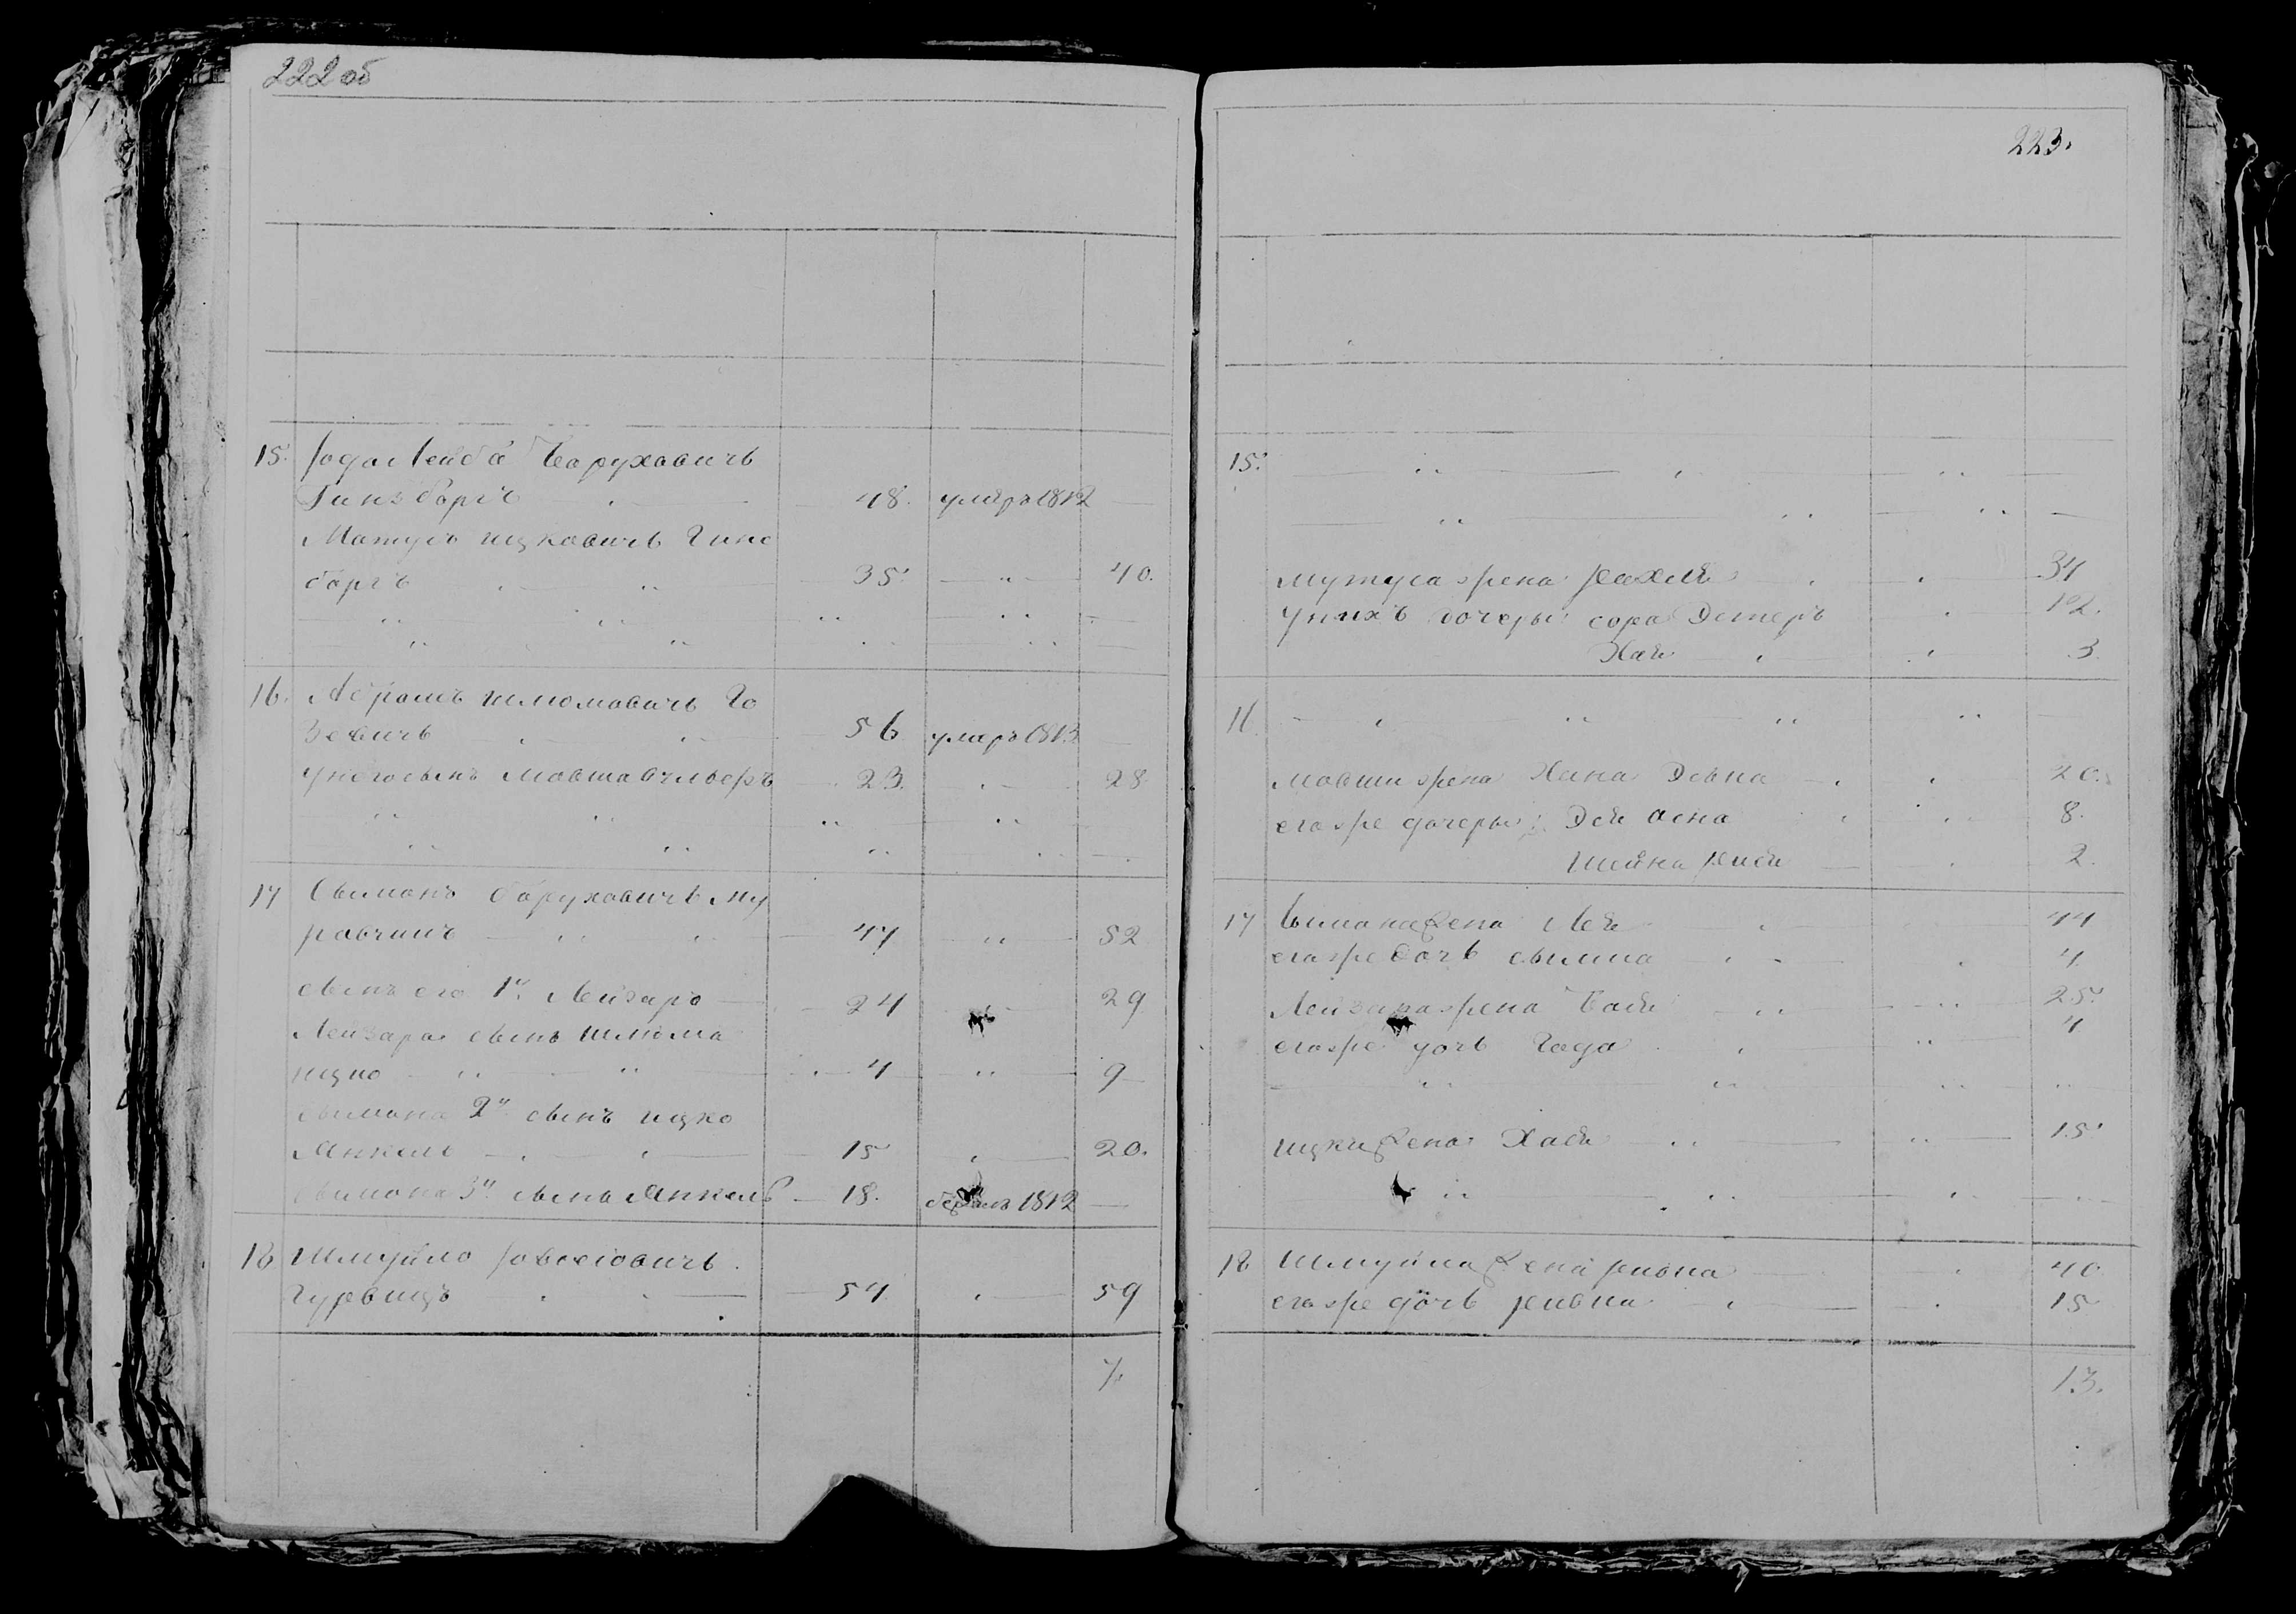 222 об
15. Іода Лейба Борухавичъ
Гинзборгъ 48. умеръ 1812
Матусъ ицкавичъ Гинс
боргъ 35. 40.
16. Абрамъ шлюмавичъ Го
зевичъ 56 умеръ 1813
унего сынъ Мовша 23. 28
17 Сымонъ борухавичъ Му
равчикъ 47 52
сынъ его 1й Лейзаръ 24 29
Лейзара сынъ шлюма
ицко 4 9
Сымона 2й сынъ ицко
Янкель 15 20.
Сымона 3й сынъ Янкель 18. бежалъ 1812
18 Шмуйло Іовсеіовичъ
Гуревицъ 54 59
7.
223.
15.
Мутуса жена Рахля 34
Унихъ дочеры сора Эстеръ 12.
Хая 3.
16
Мовши жена Хана Двина 20.
егоже дочеры: Асна 8.
Шейна 2.
17 Сымона жена Лея 44
егоже дочь сымма 4
Лейзара жена Бася 25.
егоже дочь Года 4
ицки жена Хася 15.
18 Шмуйла жена ривка 40
егоже дочь ривка 15
13.